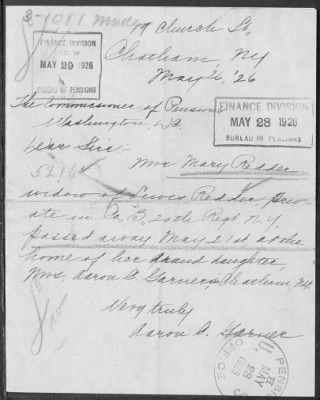 19 Church St,
Chatham, NY
May 26, '26
FINANCE DIVISION
MAY 29 1926
BUREAU OF PENSIONS
FINANCE DIVISION
MAY 28 1926
BUREAU OF PENSIONS
The Commissioner of Pensions
Washington, D.C.
Dear Sir:
Mrs Mary Redder
widow of Lewis Redder, Priv-
ate in Co B, 20th Regt. N.Y.
passed away May 21st at the
home of her grand daughter,
Mrs. Aaron C. Garner, Chatham, N.Y.
Very truly
Aaron C. Garner
MAY 28
OFFICE